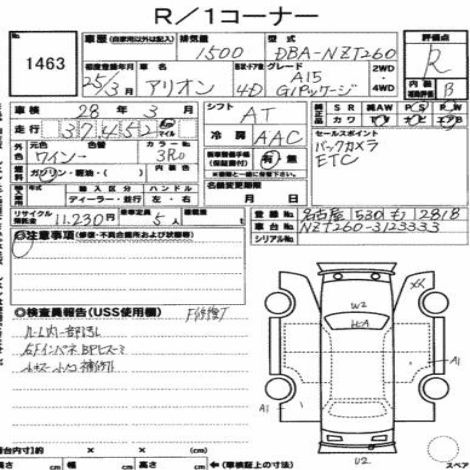 R／1コーナー
No. 1463
車歴 (自家用以外は記入) 排気量 1500 型式 DBA-NZT260 評価点 R
初度登録年月 25/3月 車名 アリオン 形状・ドア数 4D グレード A15 G1パッケージ 2WD・4WD 内装 補助評価 B
車検 28年 3月 シフト AT 純正品 SR 純AW PS PW
走行 37,452 マイル 冷房 AAC カワ TV ナビ エアB
外色 元色 ワイン 色替 カラーNo. 3R0 セールスポイント
バックカメラ
ETC
燃料 ガソリン・軽油・( ) 内装色 有・無
輸入区分 ハンドル 名義変更期限
ディーラー・並行 左・右 月 日
リサイクル預託金 11,230円 乗車定員 5人 積載量
登録No. 名古屋 530 も 2818
車台No. NZT260-3123333
シリアルNo.
◎注意事項 (修復・不具合箇所および状態等)
◎検査員報告 (USS使用欄)
W2
XX
A1
A1
U2
車台内寸 × × (cm)
長さ cm 幅 cm 高さ cm ←(車検証上の寸法) スペア